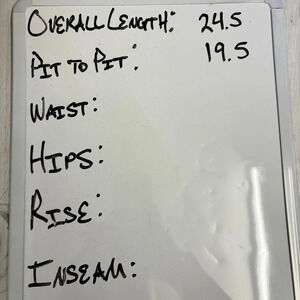 Overall Length: 24.5
Pit to Pit: 19.5
Waist:
Hips:
Rise:
Inseam: